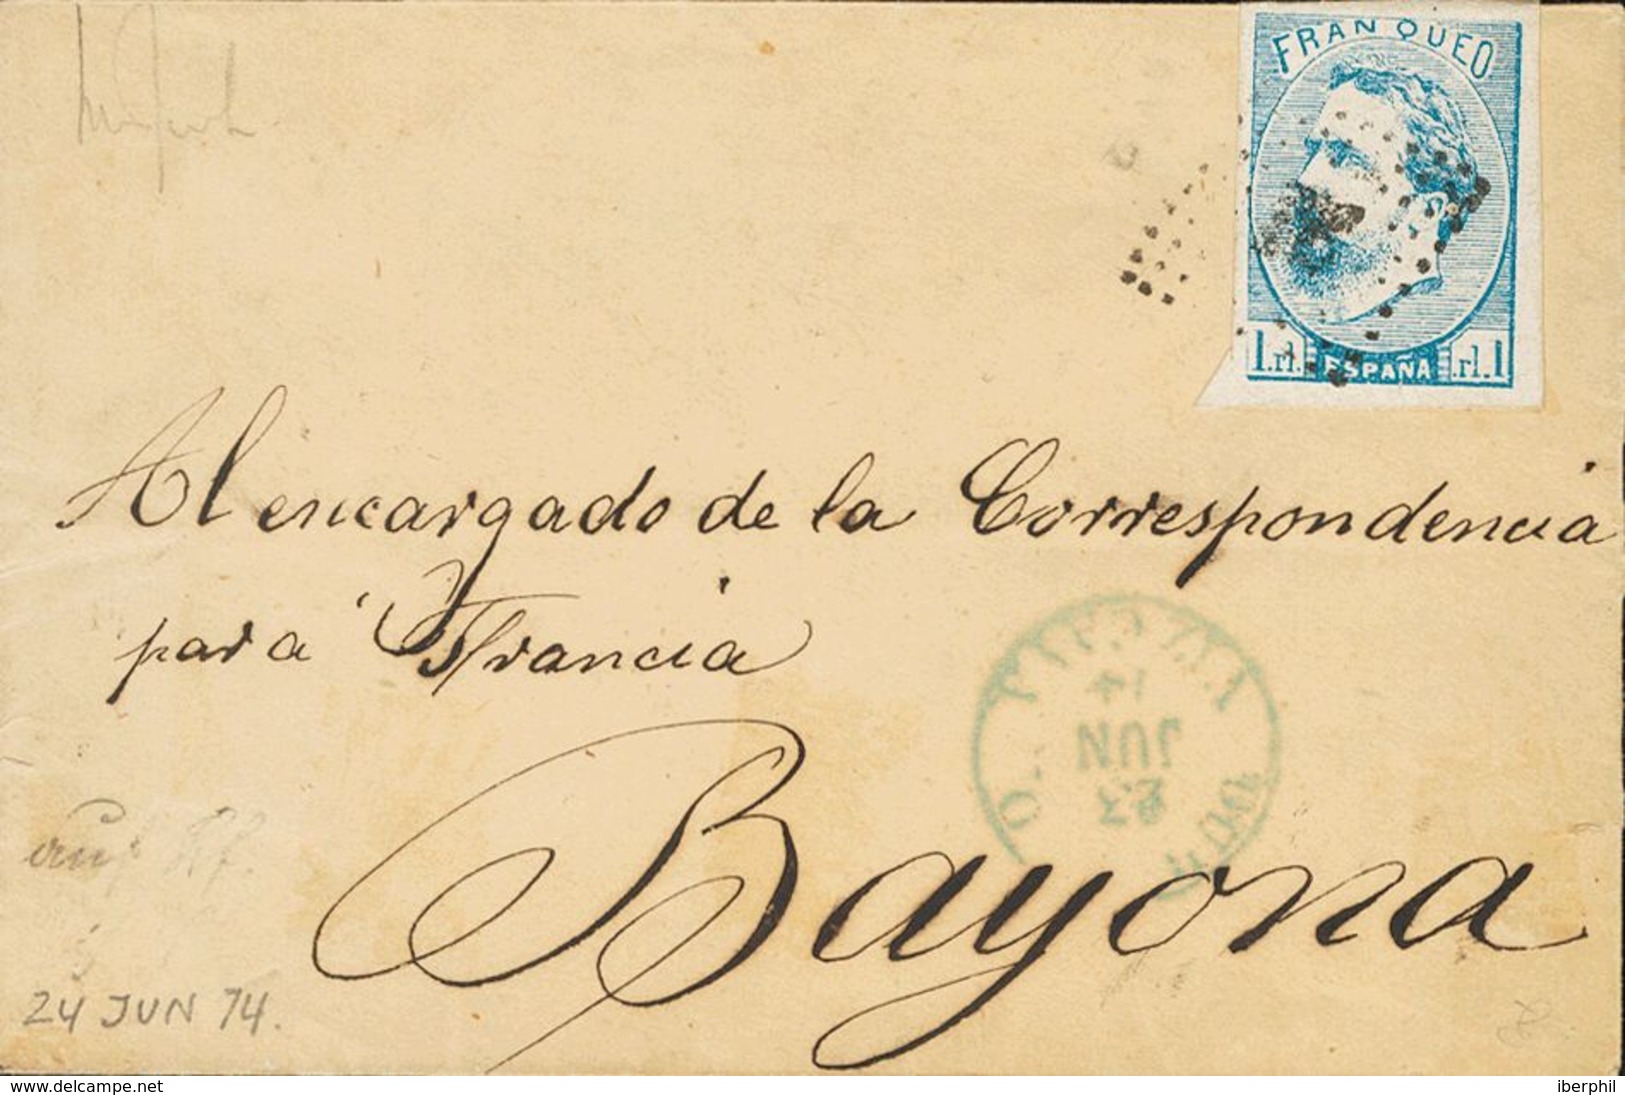 FRANQUEO
1.rl. ESPAÑA .rl.1
Al encargado de la Correspondencia
para Francia
14
JUN
23
Bayona
24 JUN 74.
www.delcampe.net
iberphil